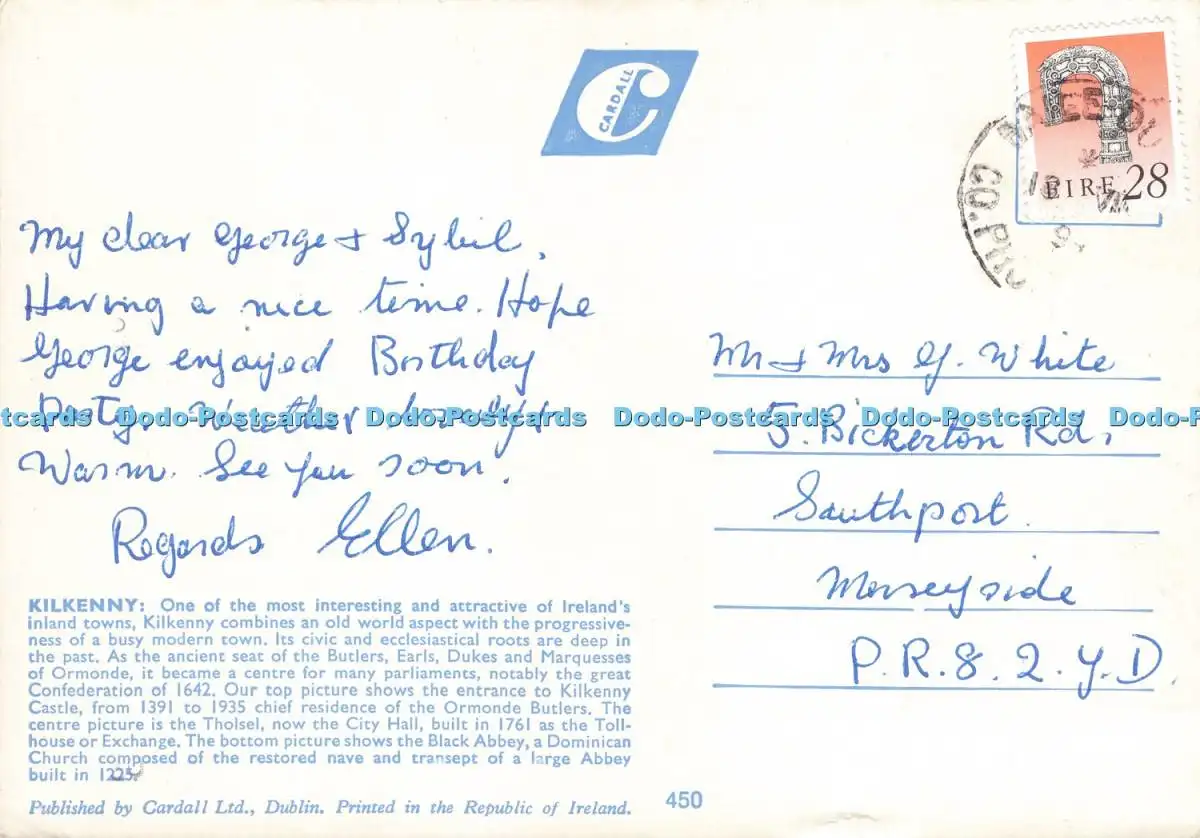 CARDALL
EIRE 28
CO. PHO
My dear George & Sybil,
Having a nice time. Hope
George enjoyed Birthday
Party. Weather
Warm. See you soon.
Regards Ellen.
Mr & Mrs G. White
5. Bickerton Rd,
Southport.
Merseyside
P.R.8.2.Y.D.
Dodo-Postcards Dodo-Postcards Dodo-Postcards Dodo-Postcards Dodo-Postcards
KILKENNY: One of the most interesting and attractive of Ireland's
inland towns, Kilkenny combines an old world aspect with the progressive-
ness of a busy modern town. Its civic and ecclesiastical roots are deep in
the past. As the ancient seat of the Butlers, Earls, Dukes and Marquesses
of Ormonde, it became a centre for many parliaments, notably the great
Confederation of 1642. Our top picture shows the entrance to Kilkenny
Castle, from 1391 to 1935 chief residence of the Ormonde Butlers. The
centre picture is the Tholsel, now the City Hall, built in 1761 as the Toll-
house or Exchange. The bottom picture shows the Black Abbey, a Dominican
Church composed of the restored nave and transept of a large Abbey
built in 1225.
Published by Cardall Ltd., Dublin. Printed in the Republic of Ireland.
450